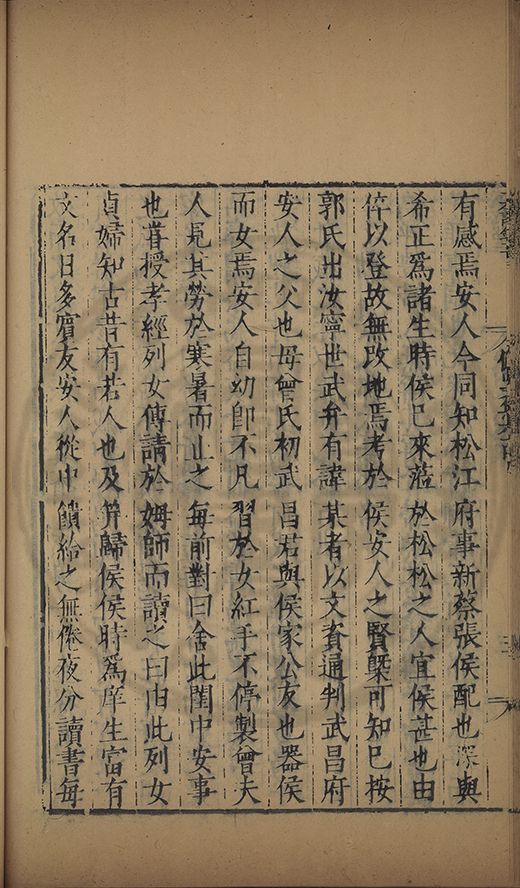 有感焉安人今同知松江府事新蔡張侯配也深與
希正爲諸生時侯已來蒞於松松之人宜侯甚也由
倅以登故無改地焉考於侯安人之賢槩可知已按
郭氏出汝寧世武弁有諱某者以文資通判武昌府
安人之父也母曾氏初武昌若與侯家公友也器侯
而女焉安人自幼即不凡習於女紅手不停製曾夫
人見其勞於寒暑而止之每前對曰舍此閨中安事
也嘗授孝經列女傳請於姆師而讀之曰由此列女
貞婦知古昔有若人也及笄歸侯侯時爲庠生富有
文名日多賓友安人從中饋給之無倦夜分讀書每